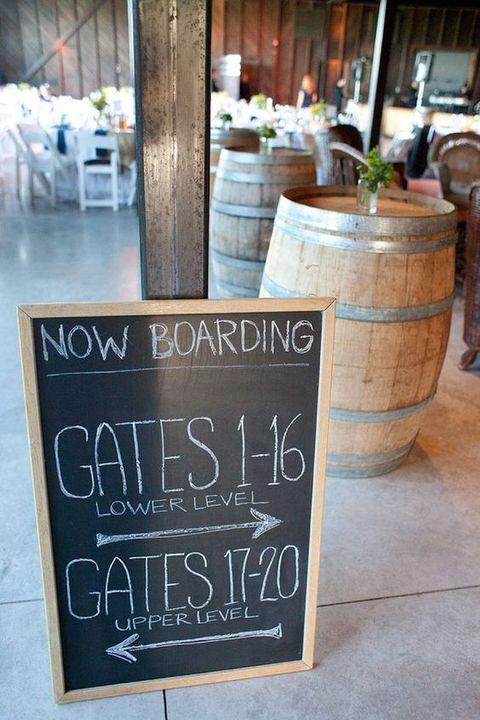 NOW BOARDING
GATES 1-16
LOWER LEVEL
GATES 17-20
UPPER LEVEL